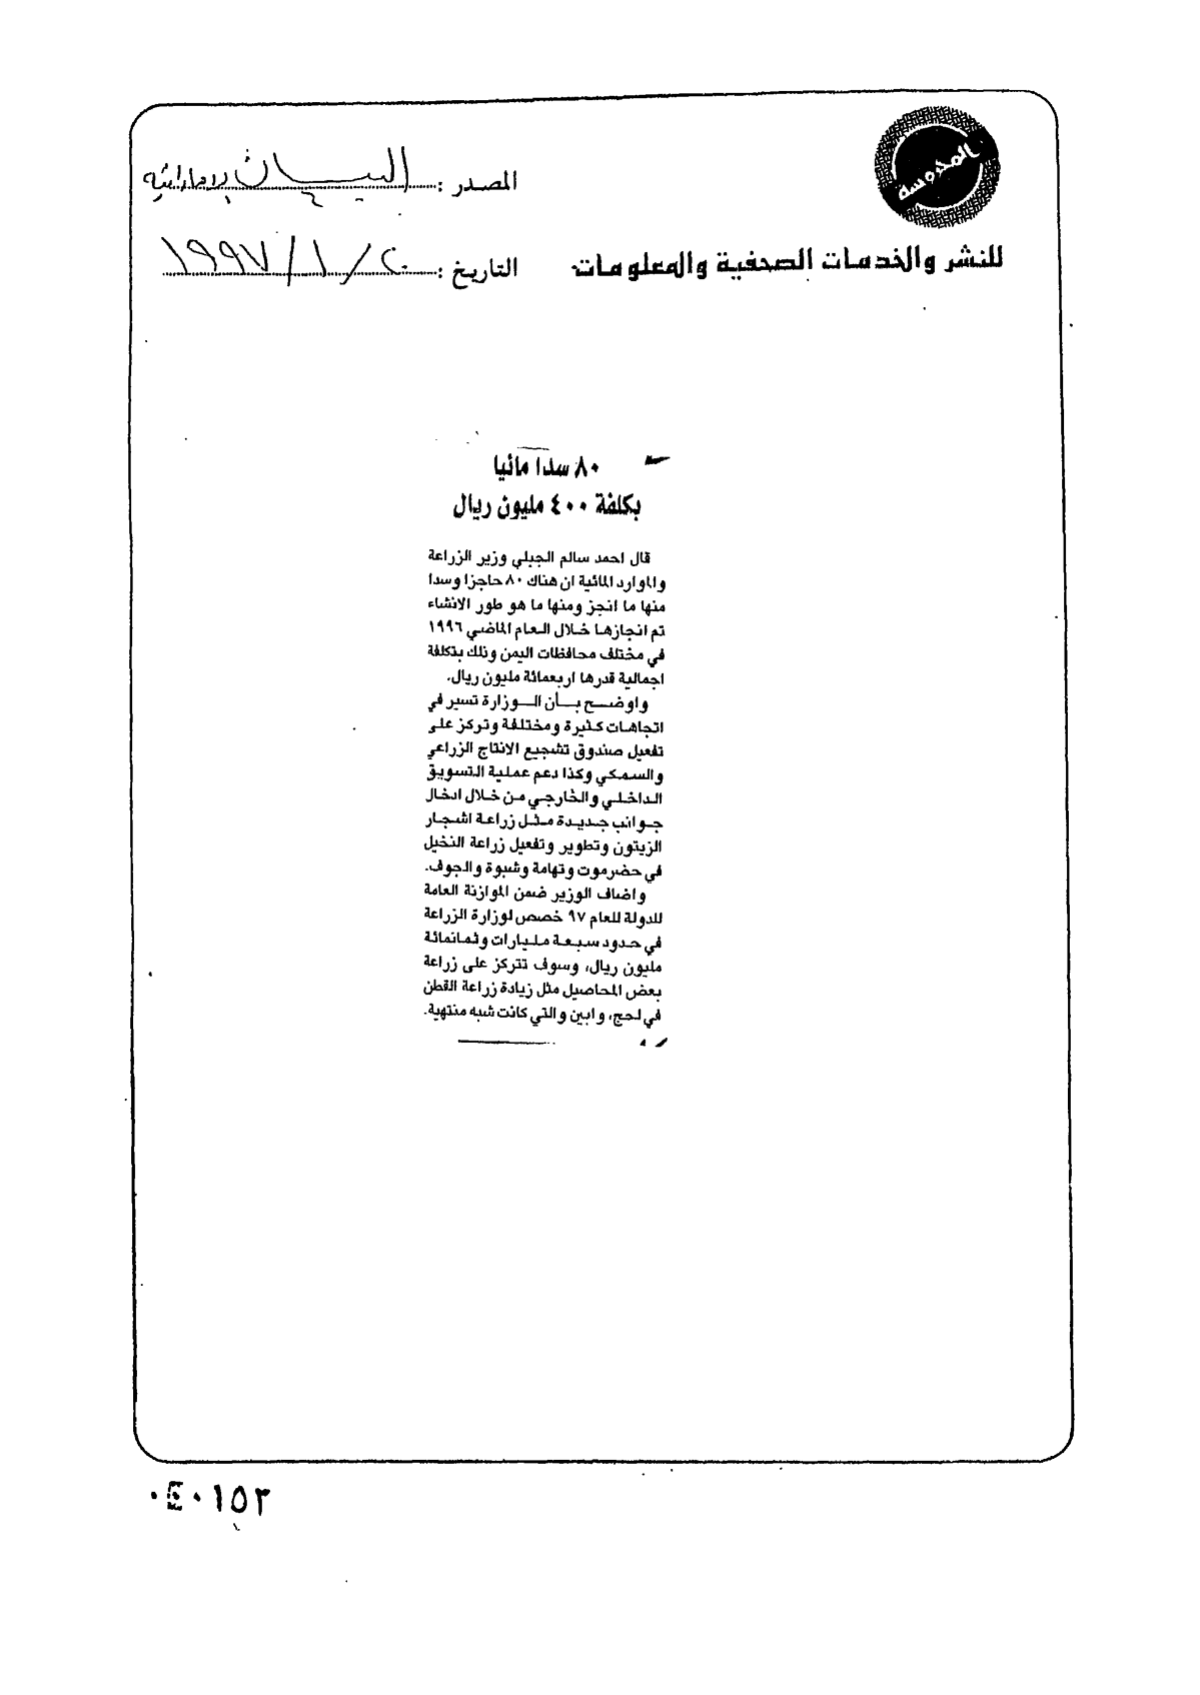 المحروسة
للنشر والخدمات الصحفية والمعلومات
المصدر : البيان الإماراتية
التاريخ : ٢٠ / ١ / ١٩٩٧
٨٠ سدا مائيا
بكلفة ٤٠٠ مليون ريال
قال احمد سالم الجبلي وزير الزراعة
والموارد المائية ان هناك ٨٠ حاجزا وسدا
منها ما انجز ومنها ما هو طور الانشاء
تم انجازها خلال العام الماضي ١٩٩٦
في مختلف محافظات اليمن وذلك بتكلفة
اجمالية قدرها اربعمائة مليون ريال.
واوضح بأن الوزارة تسير في
اتجاهات كثيرة ومختلفة وتركز على
تفعيل صندوق تشجيع الانتاج الزراعي
والسمكي وكذا دعم عملية التسويق
الداخلي والخارجي من خلال ادخال
جوانب جديدة مثل زراعة اشجار
الزيتون وتطوير وتفعيل زراعة النخيل
في حضرموت وتهامة وشبوة والجوف.
واضاف الوزير ضمن الموازنة العامة
للدولة للعام ٩٧ خصص لوزارة الزراعة
في حدود سبعة مليارات وثمانمائة
مليون ريال، وسوف تتركز على زراعة
بعض المحاصيل مثل زيادة زراعة القطن
في لحج، وابين والتي كانت شبه منتهية.